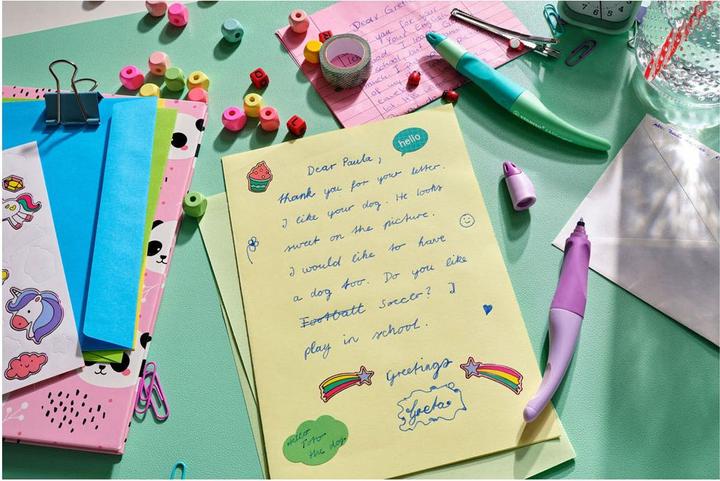 hello
Dear Paula,
thank you for your letter.
I like your dog. He looks
sweet on the picture.
I would like to have
a dog too. Do you like
Football Soccer? I
play in school.
Greetings
Greta
Hello
to
the dog
Dear Gret
you for your